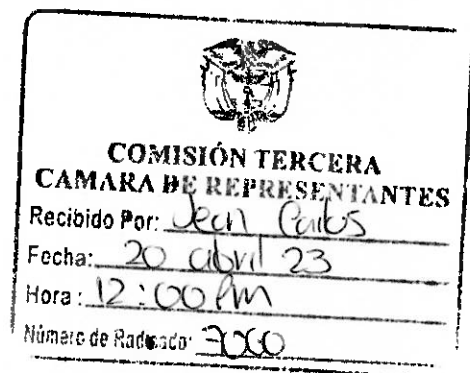 COMISIÓN TERCERA
CAMARA DE REPRESENTANTES
Recibido Por: Jean Carlos
Fecha: 20 abril 23
Hora: 12:00 PM
Número de Radicado: